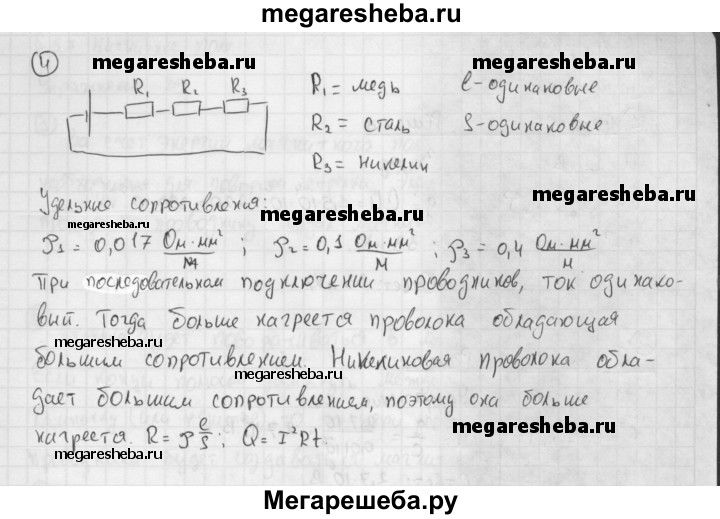 megaresheba.ru
4
megaresheba.ru
R₁ R₂ R₃
R₁ = медь ℓ-одинаковые
R₂ = сталь S-одинаковые
R₃ = никелин
megaresheba.ru
megaresheba.ru
Удельные сопротивления:
megaresheba.ru
megaresheba.ru
ρ₁ = 0,017 Ом·мм²/м ; ρ₂ = 0,1 Ом·мм²/м ; ρ₃ = 0,4 Ом·мм²/м
При последовательном подключении проводников, ток одинако-
вый. Тогда больше нагреется проволока обладающая
большим сопротивлением. Никелиновая проволока обла-
megaresheba.ru
дает большим сопротивлением, поэтому она больше
нагреется. R = ρ ℓ/S; Q = I²Rt
megaresheba.ru
megaresheba.ru
megaresheba.ru
Мегарешеба.ру